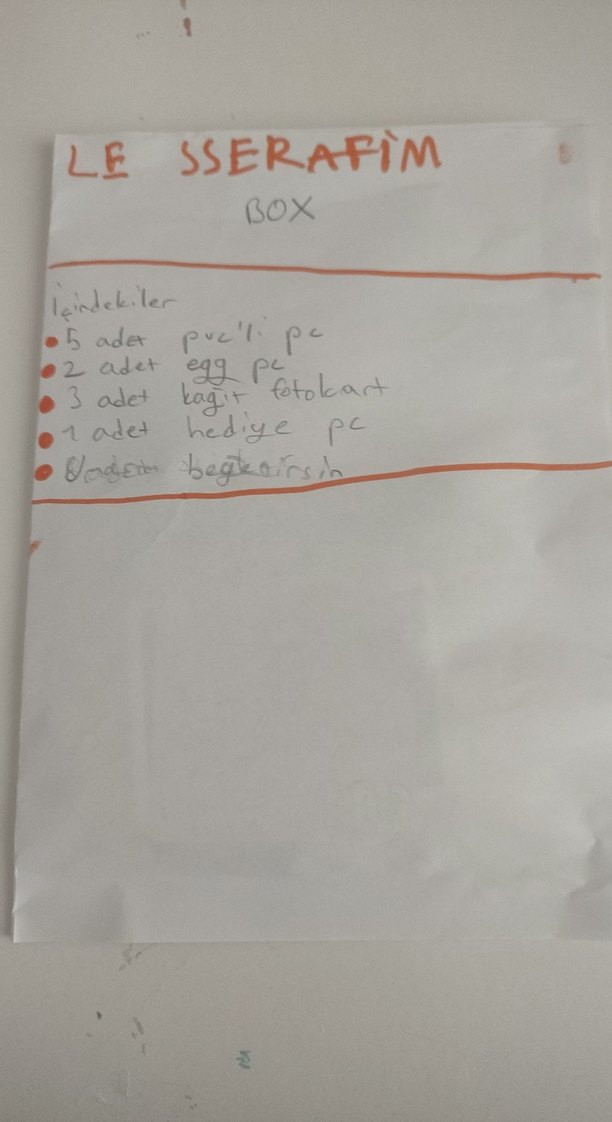 LE SSERAFİM
BOX
İçindekiler
5 adet pvc'li pc
2 adet egg pc
3 adet kağıt fotokart
1 adet hediye pc